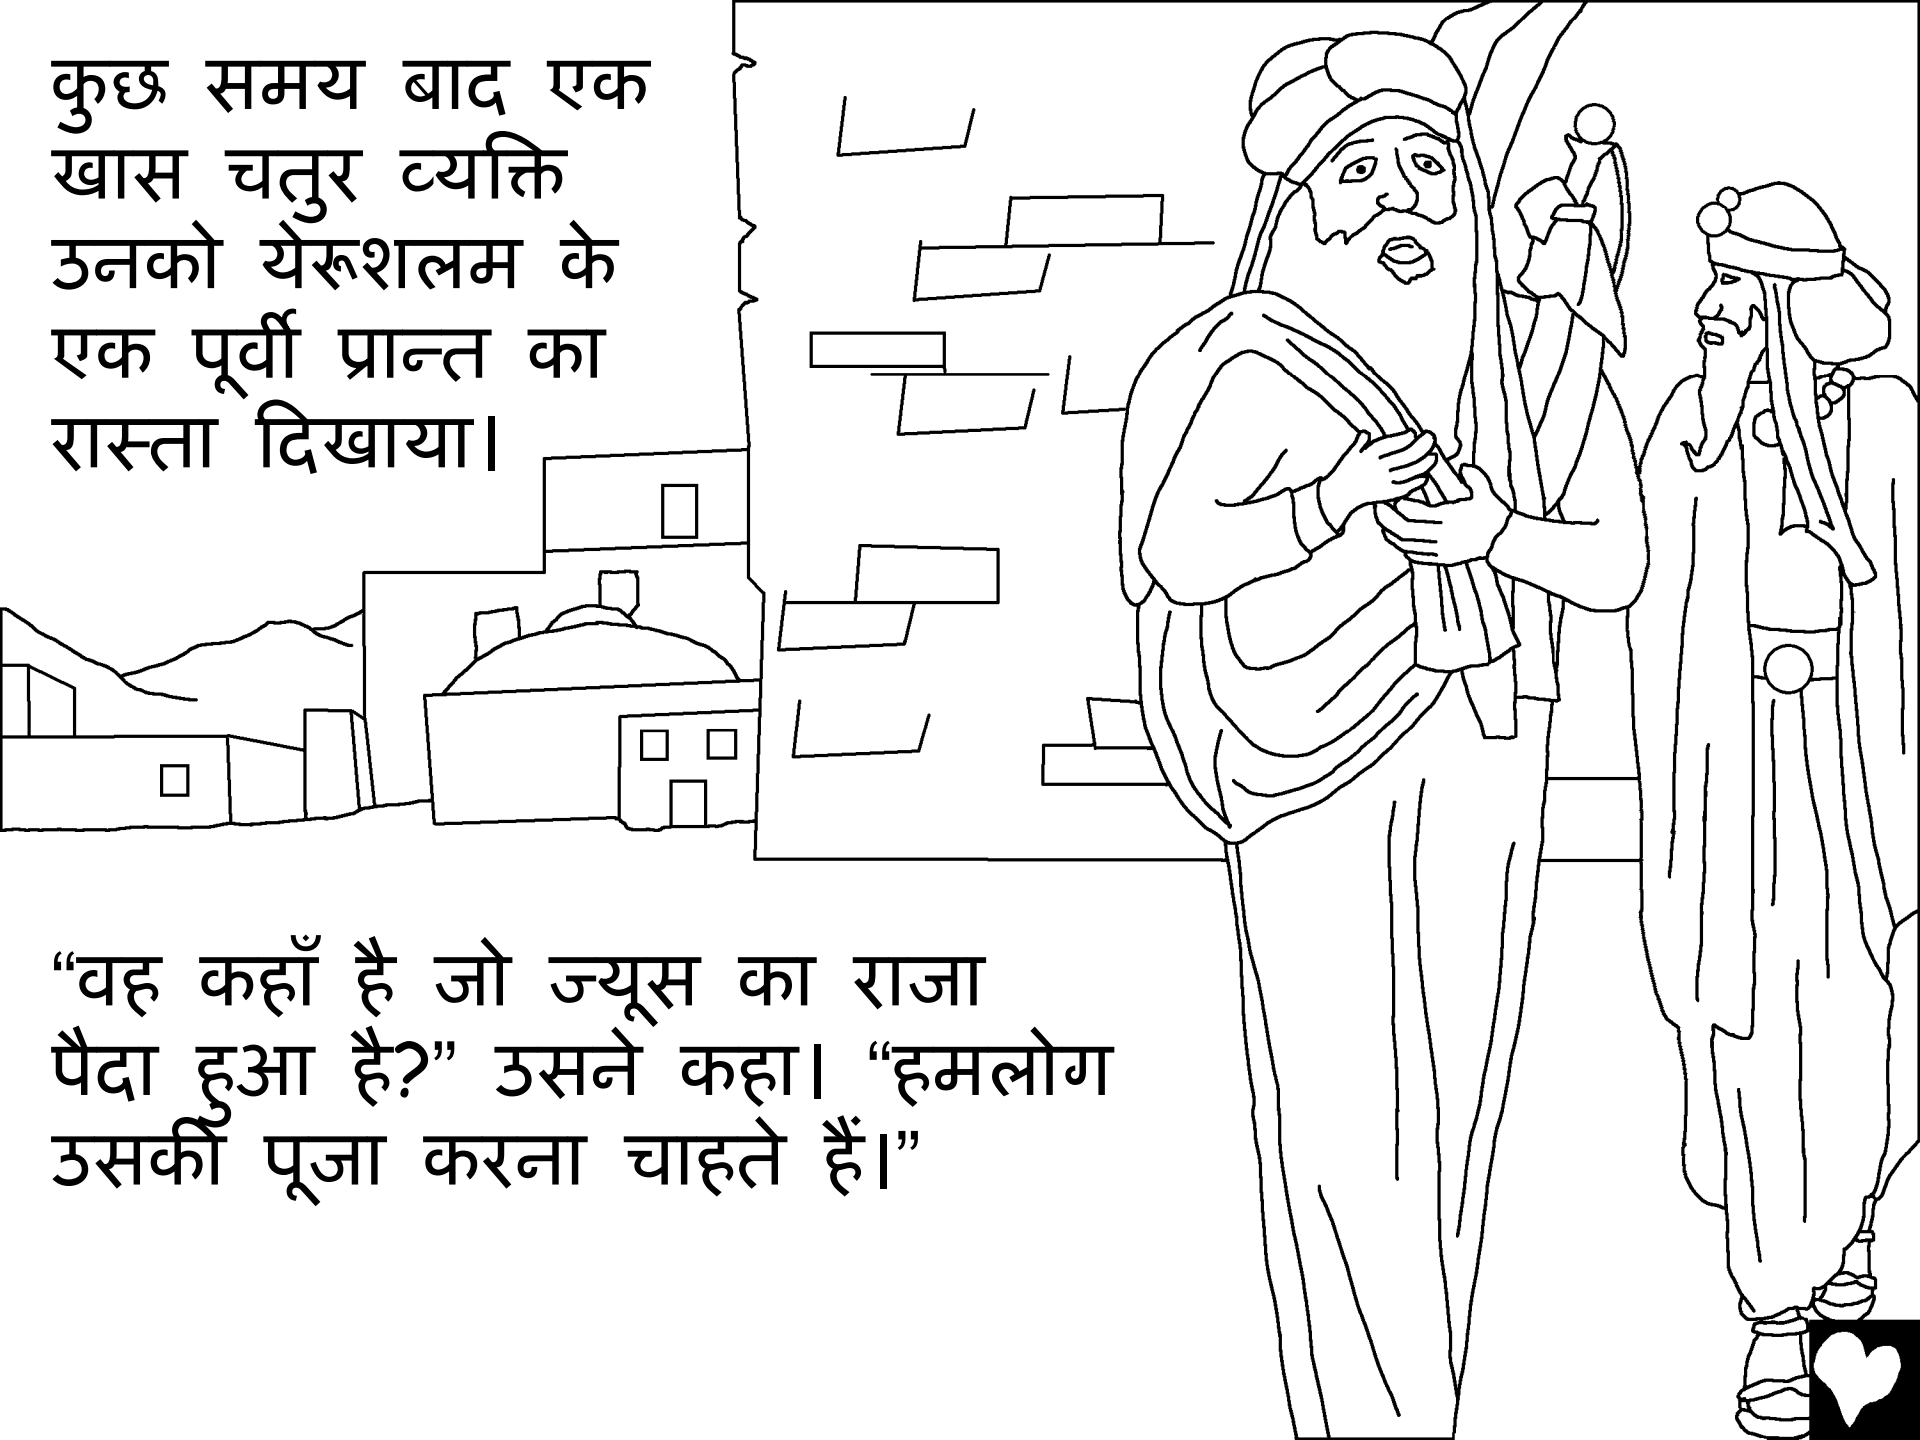 कुछ समय बाद एक
खास चतुर व्यक्ति
उनको येरूशलम के
एक पूर्वी प्रान्त का
रास्ता दिखाया।
“वह कहाँ है जो ज्यूस का राजा
पैदा हुआ है?” उसने कहा। “हमलोग
उसकी पूजा करना चाहते हैं।”